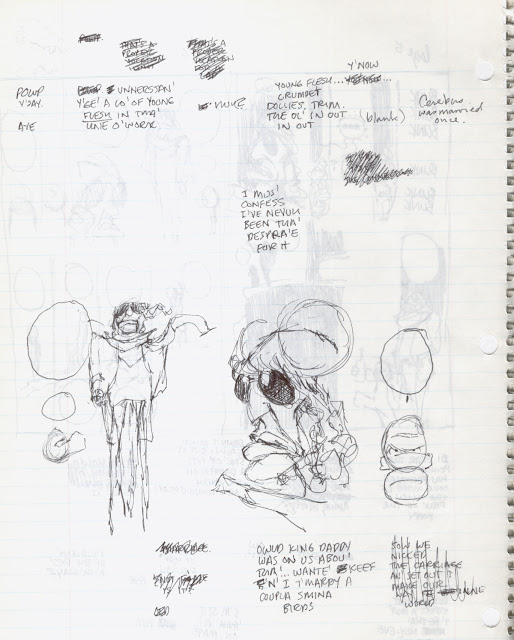 Y'NOW
POWP
Y'SAY.
AYE
UNNERSSAN'
Y'GE' A LO' OF YOUNG
FLESH IN THA'
LINE O'WORK
YOUNG FLESH...
CRUMPET
DOLLIES, TRIM.
THE OL' IN OUT
IN OUT
(blank)
Cerebus
was married
once.
I MUS'
CONFESS
I'VE NEVUH
BEEN THA'
DESPRA'E
FOR IT
OWUD KING DADDY
WAS ON US ABOU'
THA'... WANTE'
KEEF
'N' I T'MARRY A
COUPLA
BIRDS
SOW WE
NICKED
THE CARRIAGE
AN' SET OUT T'
MAKE OUR
WAY IN
WORLD